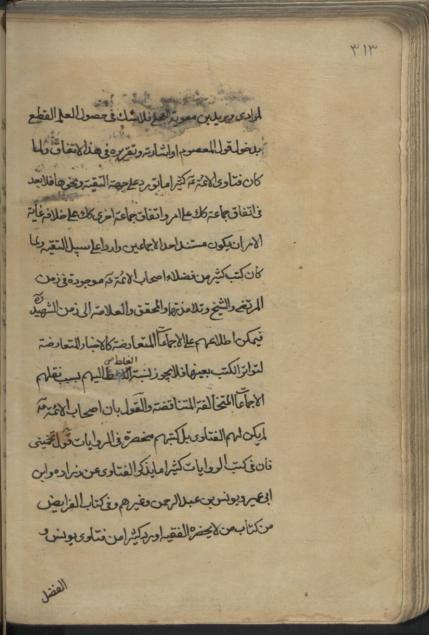 ٣١٣
المرادى وبريد بن معوية العجلى فلا شك فى حصول العلم القطع
بدخول قول المعصوم او اشارته وتقريره فى هذا الاتفاق ولما
كان فتاوى الائمة عم كثيرا ما يقع على جهة التقية ونحوها فلا بعد
فى اتفاق جماعة كك على امر واتفاق جماعة اخرى كك على خلافه غاية
الامر ان يكون مستند احد الاجماعين واردا على سبيل التقية ولما
كان كتب كثير من فضلاء اصحاب الائمة عم موجودة فى زمن
المرتضى والشيخ وتلامذتهما والمحقق والعلامة الى زمن الشهيد ره
فيمكن اطلاعهم على الاجماعات المتعارضة كالاخبار المتعارضة
الغلط
لتواتر الكتب بعينها فلا يجوز نسبة اليهم بسبب نقلهم
الاجماعات المتخالفة المتناقضة والقول بان اصحاب الائمة عم
لم يكن لهم الفتاوى بل كتبهم منحصرة فى الروايات قول تخمينى
فان فى كتب الروايات كثيرا ما يذكر الفتاوى عن زرارة وابن
ابى عمير ويونس بن عبد الرحمن وغيرهم وفى كتاب الفرايض
من كتاب من لا يحضره الفقيه اورد كثيرا من فتاوى يونس و
الفضل